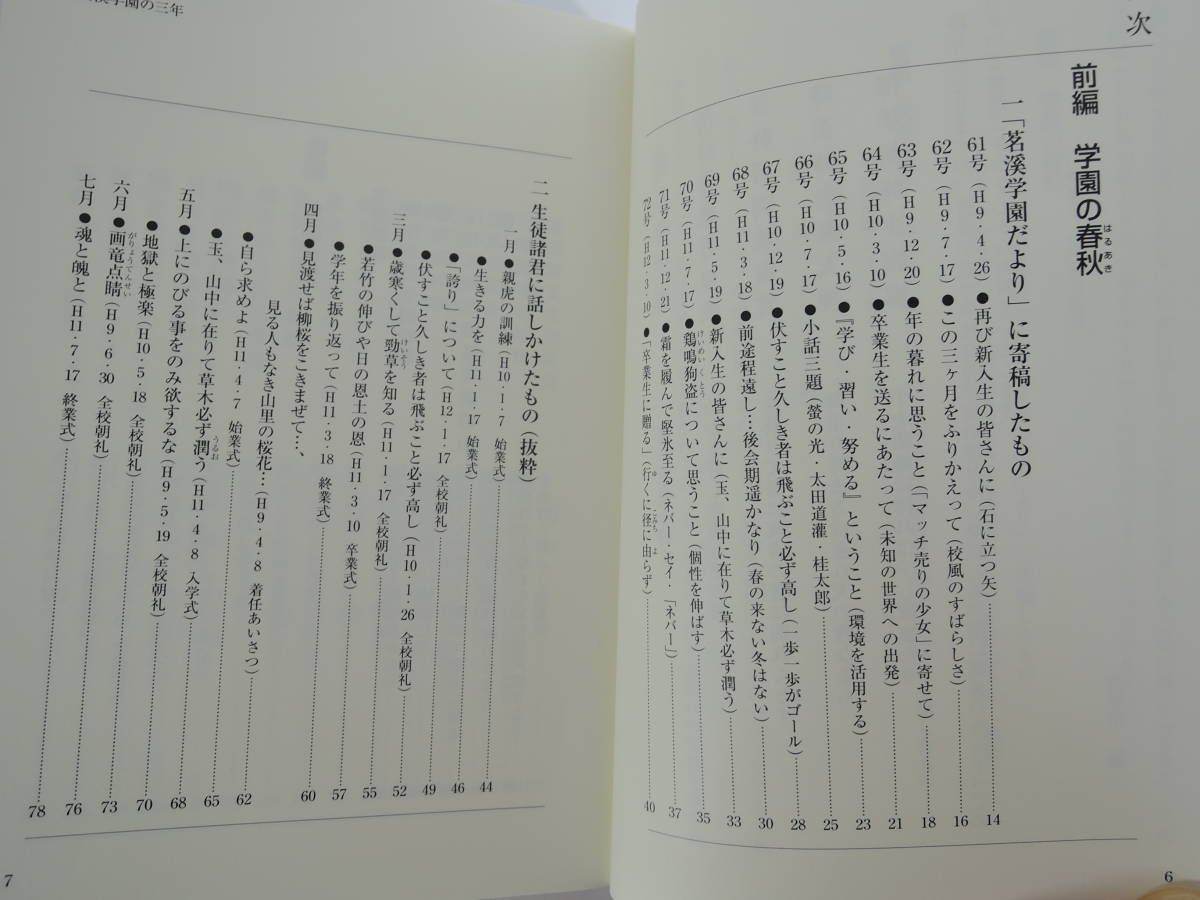 次
前編　学園の春秋
はるあき
一「茗溪学園だより」に寄稿したもの
61号（H9・4・26）●再び新入生の皆さんに（石に立つ矢）……14
62号（H9・7・17）●この三ヶ月をふりかえって（校風のすばらしさ）……16
63号（H9・12・20）●年の暮れに思うこと（「マッチ売りの少女」に寄せて）……18
64号（H10・3・10）●卒業生を送るにあたって（未知の世界への出発）……21
65号（H10・5・16）●『学び・習い・努める』ということ（環境を活用する）……23
66号（H10・7・17）●小話三題（螢の光・太田道灌・桂太郎）……25
67号（H10・12・19）●伏すこと久しき者は飛ぶこと必ず高し（一歩一歩がゴール）……28
68号（H11・3・18）●前途程遠し…、後会期遥かなり（春の来ない冬はない）……30
69号（H11・5・19）●新入生の皆さんに（玉、山中に在りて草木必ず潤う）……33
70号（H11・7・17）●鶏鳴狗盗について思うこと（個性を伸ばす）……35
けいめいくとう
71号（H11・12・21）●霜を履んで堅氷至る（ネバー・セイ・「ネバー」）……37
72号（H12・3・10）●「卒業生に贈る」（行くに径に由らず）……40
ゆ　こみち　よ
6
溪学園の三年
二 生徒諸君に話しかけたもの（抜粋）
一月●親虎の訓練（H10・1・7 始業式）……44
●生きる力を（H11・1・17 始業式）……46
●「誇り」について（H12・1・17 全校朝礼）……49
●伏すこと久しき者は飛ぶこと必ず高し（H10・1・26 全校朝礼）……52
三月●歳寒くして勁草を知る（H11・1・17 全校朝礼）……55
けいそう
●若竹の伸びや日の恩土の恩（H11・3・10 卒業式）……57
●学年を振り返って（H11・3・18 終業式）……60
四月●見渡せば柳桜をこきまぜて…、
見る人もなき山里の桜花…（H9・4・8 着任あいさつ）……62
●自ら求めよ（H11・4・7 始業式）……65
●玉、山中に在りて草木必ず潤う（H11・4・8 入学式）……68
うるお
五月●上にのびる事をのみ欲するな（H9・5・19 全校朝礼）……70
●地獄と極楽（H10・5・18 全校朝礼）……73
六月●画竜点睛（H9・6・30 全校朝礼）……76
がりょうてんせい
七月●魂と魄と（H11・7・17 終業式）……78
7